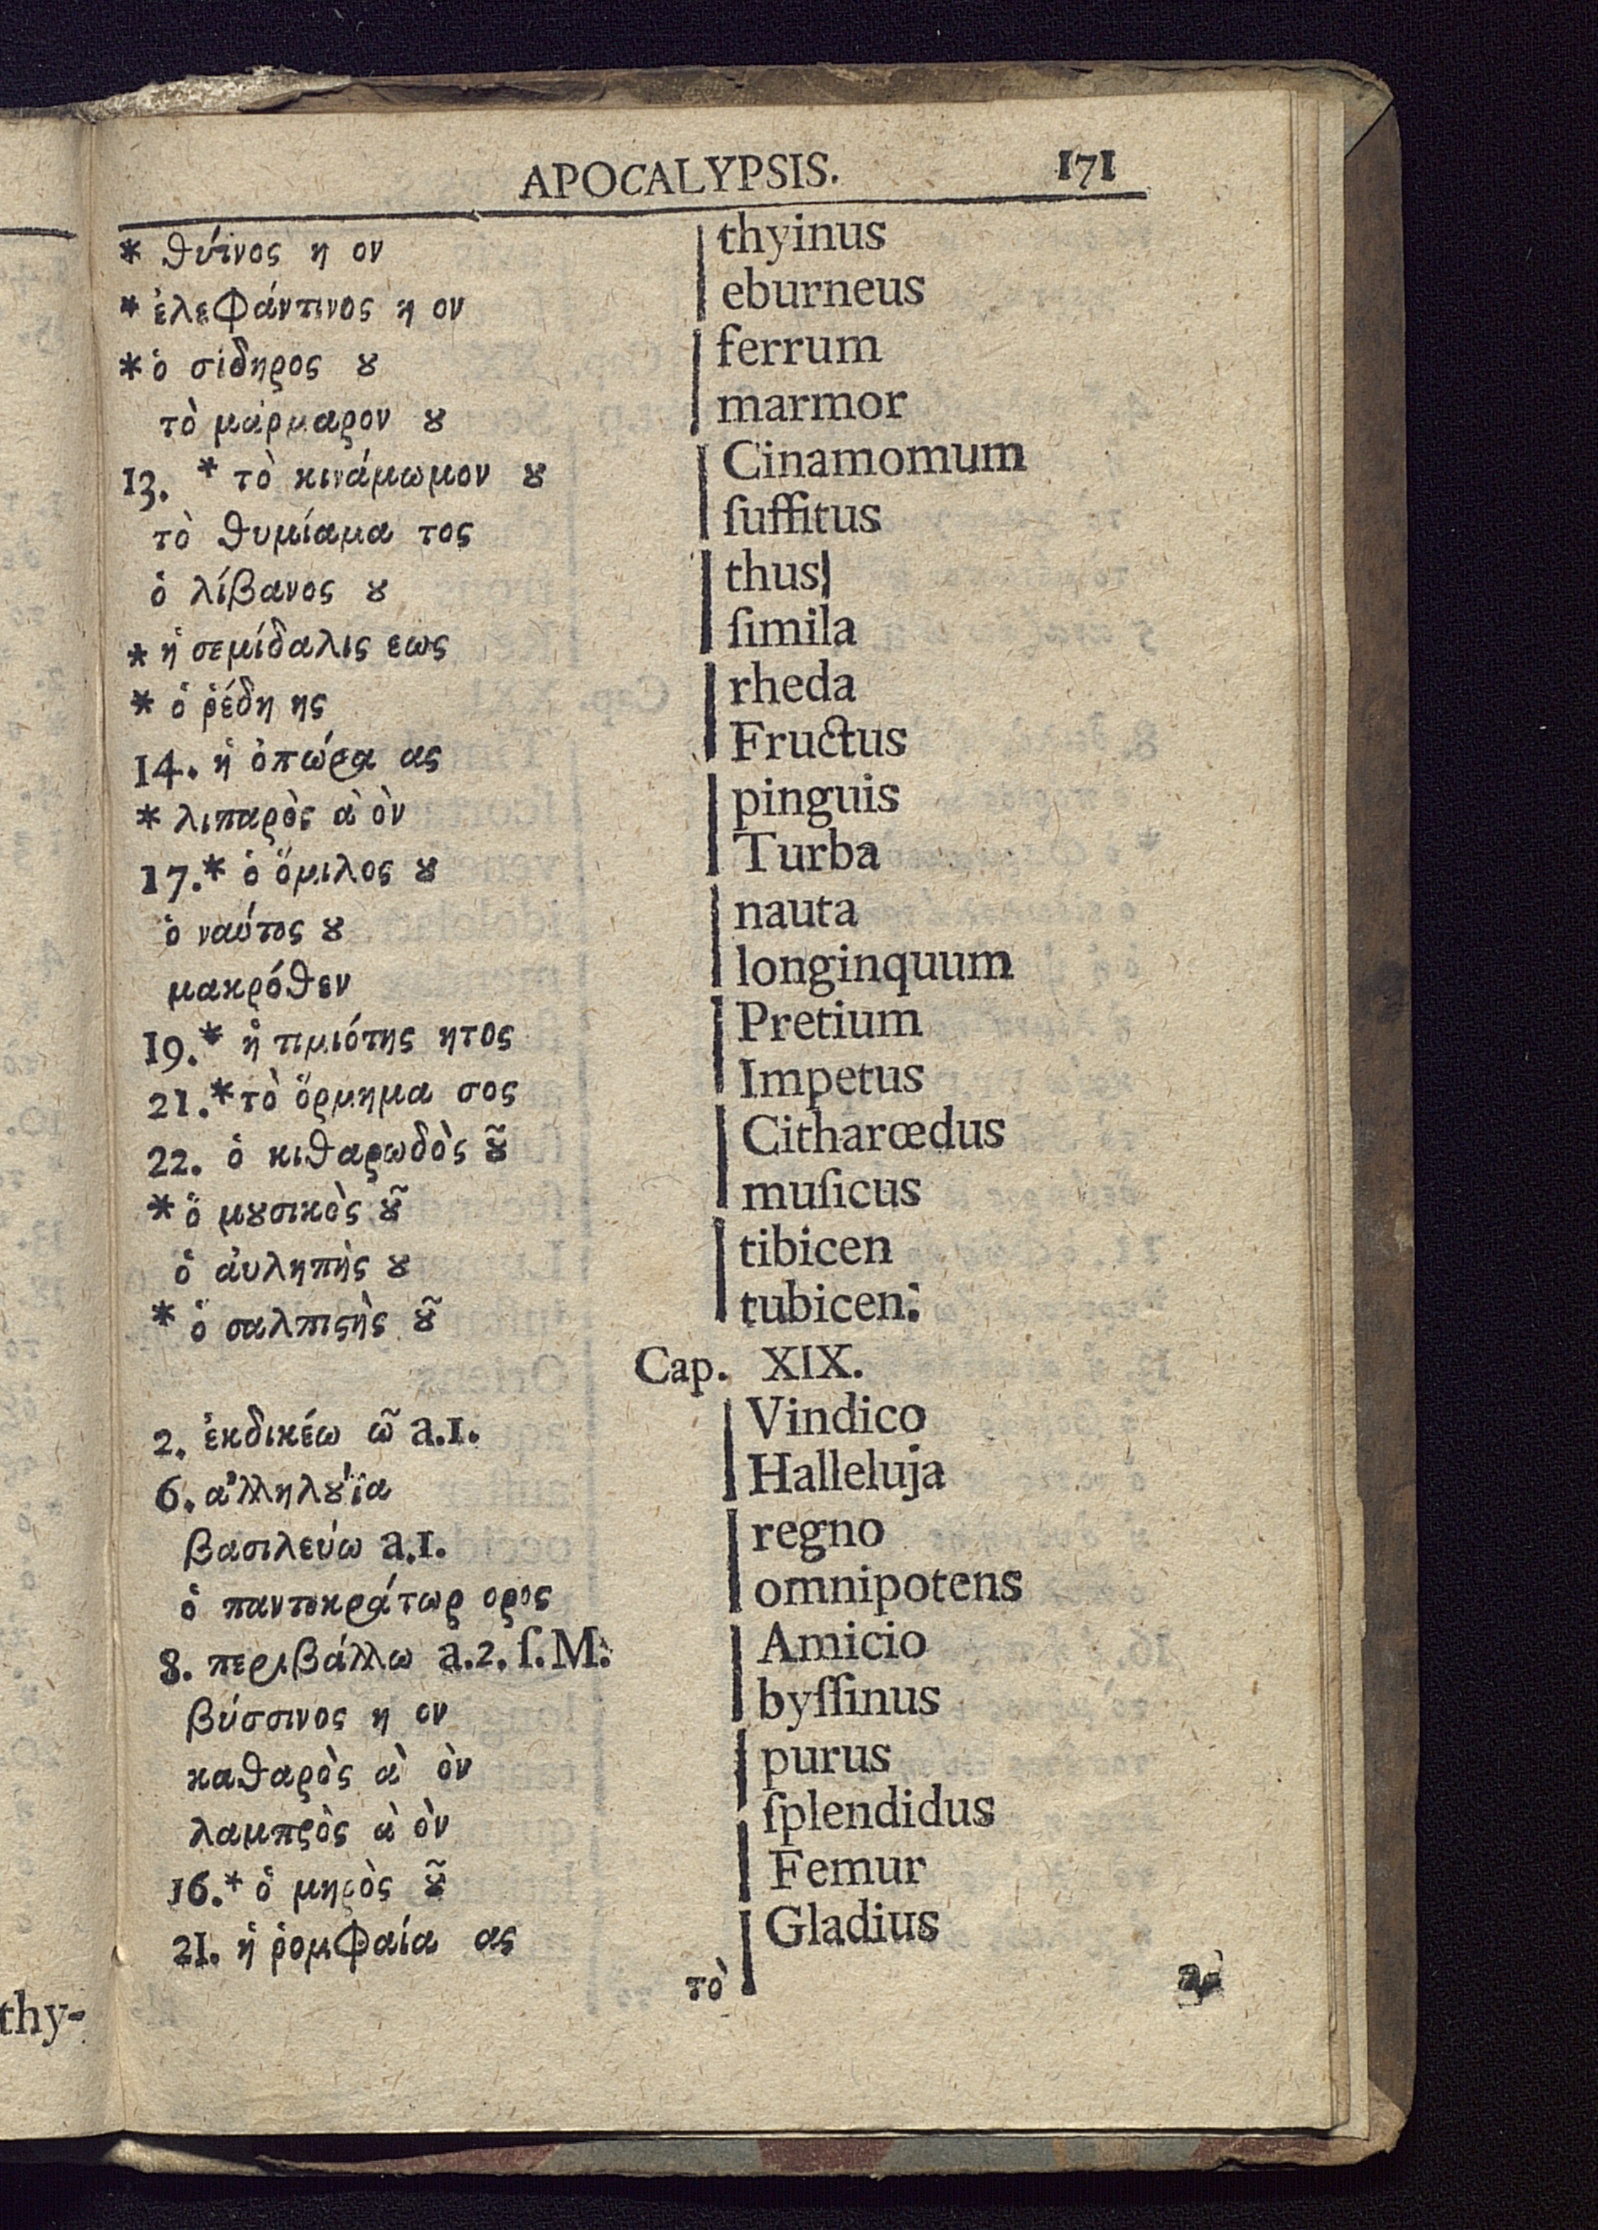 APOCALYPSIS. 171
* θύϊνος η ον thyinus
* ἐλεφάντινος η ον eburneus
* ὁ σίδηρος ȣ ferrum
τὸ μάρμαρον ȣ marmor
13. * τὸ κινάμωμον ȣ Cinamomum
τὸ θυμίαμα τος ſuffitus
ὁ λίβανος ȣ thus
* ἡ σεμίδαλις εως ſimila
* ὁ ῥέδη ης rheda
14. ἡ ὀπώρα ας Fructus
* λιπαρὸς ὰ ὸν pinguis
17.* ὁ ὅμιλος ȣ Turba
ὁ ναύτος ȣ nauta
μακρόθεν longinquum
19.* ἡ τιμιότης ητος Pretium
21.* τὸ ὅρμημα σος Impetus
22. ὁ κιθαρωδὸς ȣ͂ Citharœdus
* ὁ μȣσικὸς ȣ͂ muſicus
ὁ ἀυλητὴς ȣ tibicen
* ὁ σαλπιϛὴς ȣ͂ tubicen.
Cap. XIX.
2. ἐκδικέω ῶ a.1. Vindico
6. ἀλληλȣ́ϊα Halleluja
βασιλεύω a.1. regno
ὁ παντοκράτωρ ορος omnipotens
8. περιβάλλω a.2. ſ.M. Amicio
βύσσινος η ον byſſinus
καθαρὸς ὰ ὸν purus
λαμπρὸς ὰ ὸν ſplendidus
16.* ὁ μηρὸς ȣ͂ Femur
21. ἡ ῥομφαία ας Gladius
τὸ
thy-